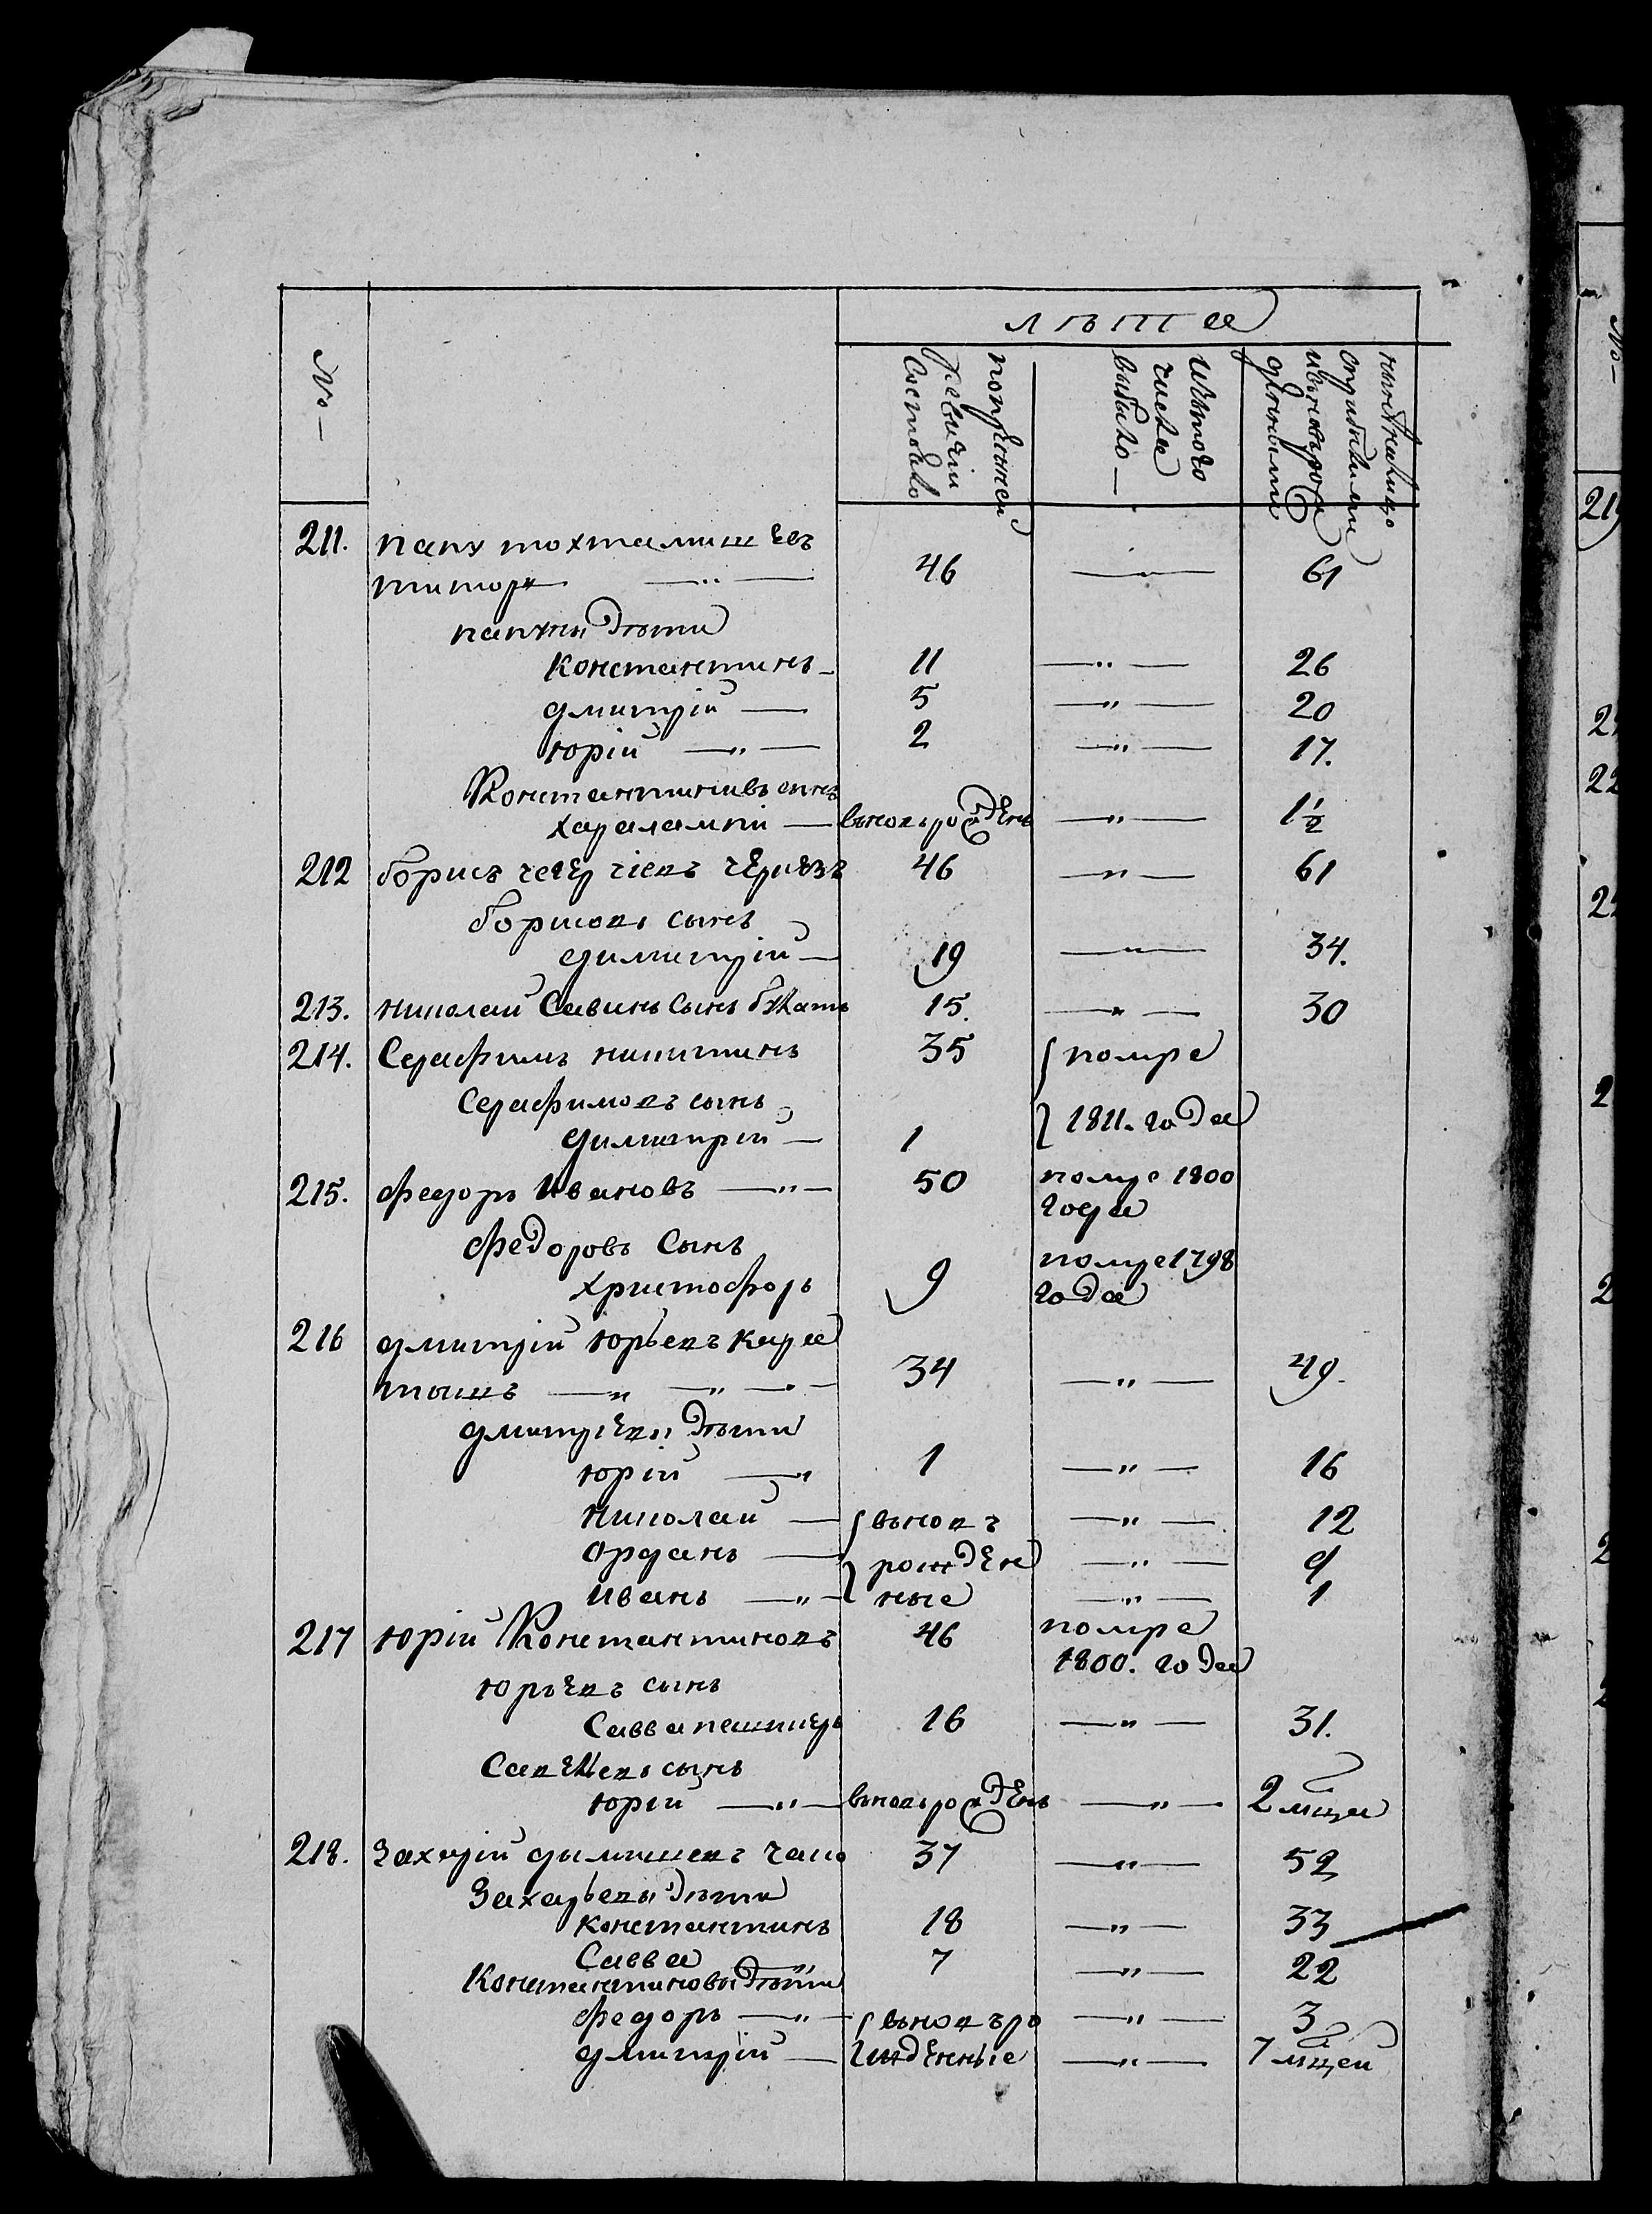 №
лѣта
по прежней ревизiи состояло
из того числа выбыло
211. папу тохтамишевъ
46 61
папуны дѣти
Константинъ 11 26
дмитрiй 5 20
юрiй 2 17.
Константиновъ сынъ
харалампи вновь рожденъ 1½
212 борисъ 46 61
борисовъ сынъ
димитрiй 19 34.
213. николай Савинъ Сынъ 15. 30
214. Серафимъ никитинъ 35 помре
Серафимовъ сынъ
димитрiй 1 1811. года
215. федоръ Ивановъ 50 помре 1800 года
федоровъ Сынъ
христофоръ 9 помре 1798 года
216 дмитрiй юрьевъ кара
ташъ 34 49.
дмитрiевы дѣти
юрiй 1 16
николай вновь 12
орданъ рожден 9
иванъ ные 1
217 юрiй Константиновъ 46 помре 1800. года
юрьевъ сынъ
Савва 16 31.
сынъ
юрiй вновь рожденъ 2 мца
218. Захарiй 37 52
Захарьевы дѣти
константинъ 18 33
Савва 7 22
Константиновы дѣти
федоръ вновь ро 3
дмитрiй жденные 7 мцей
№